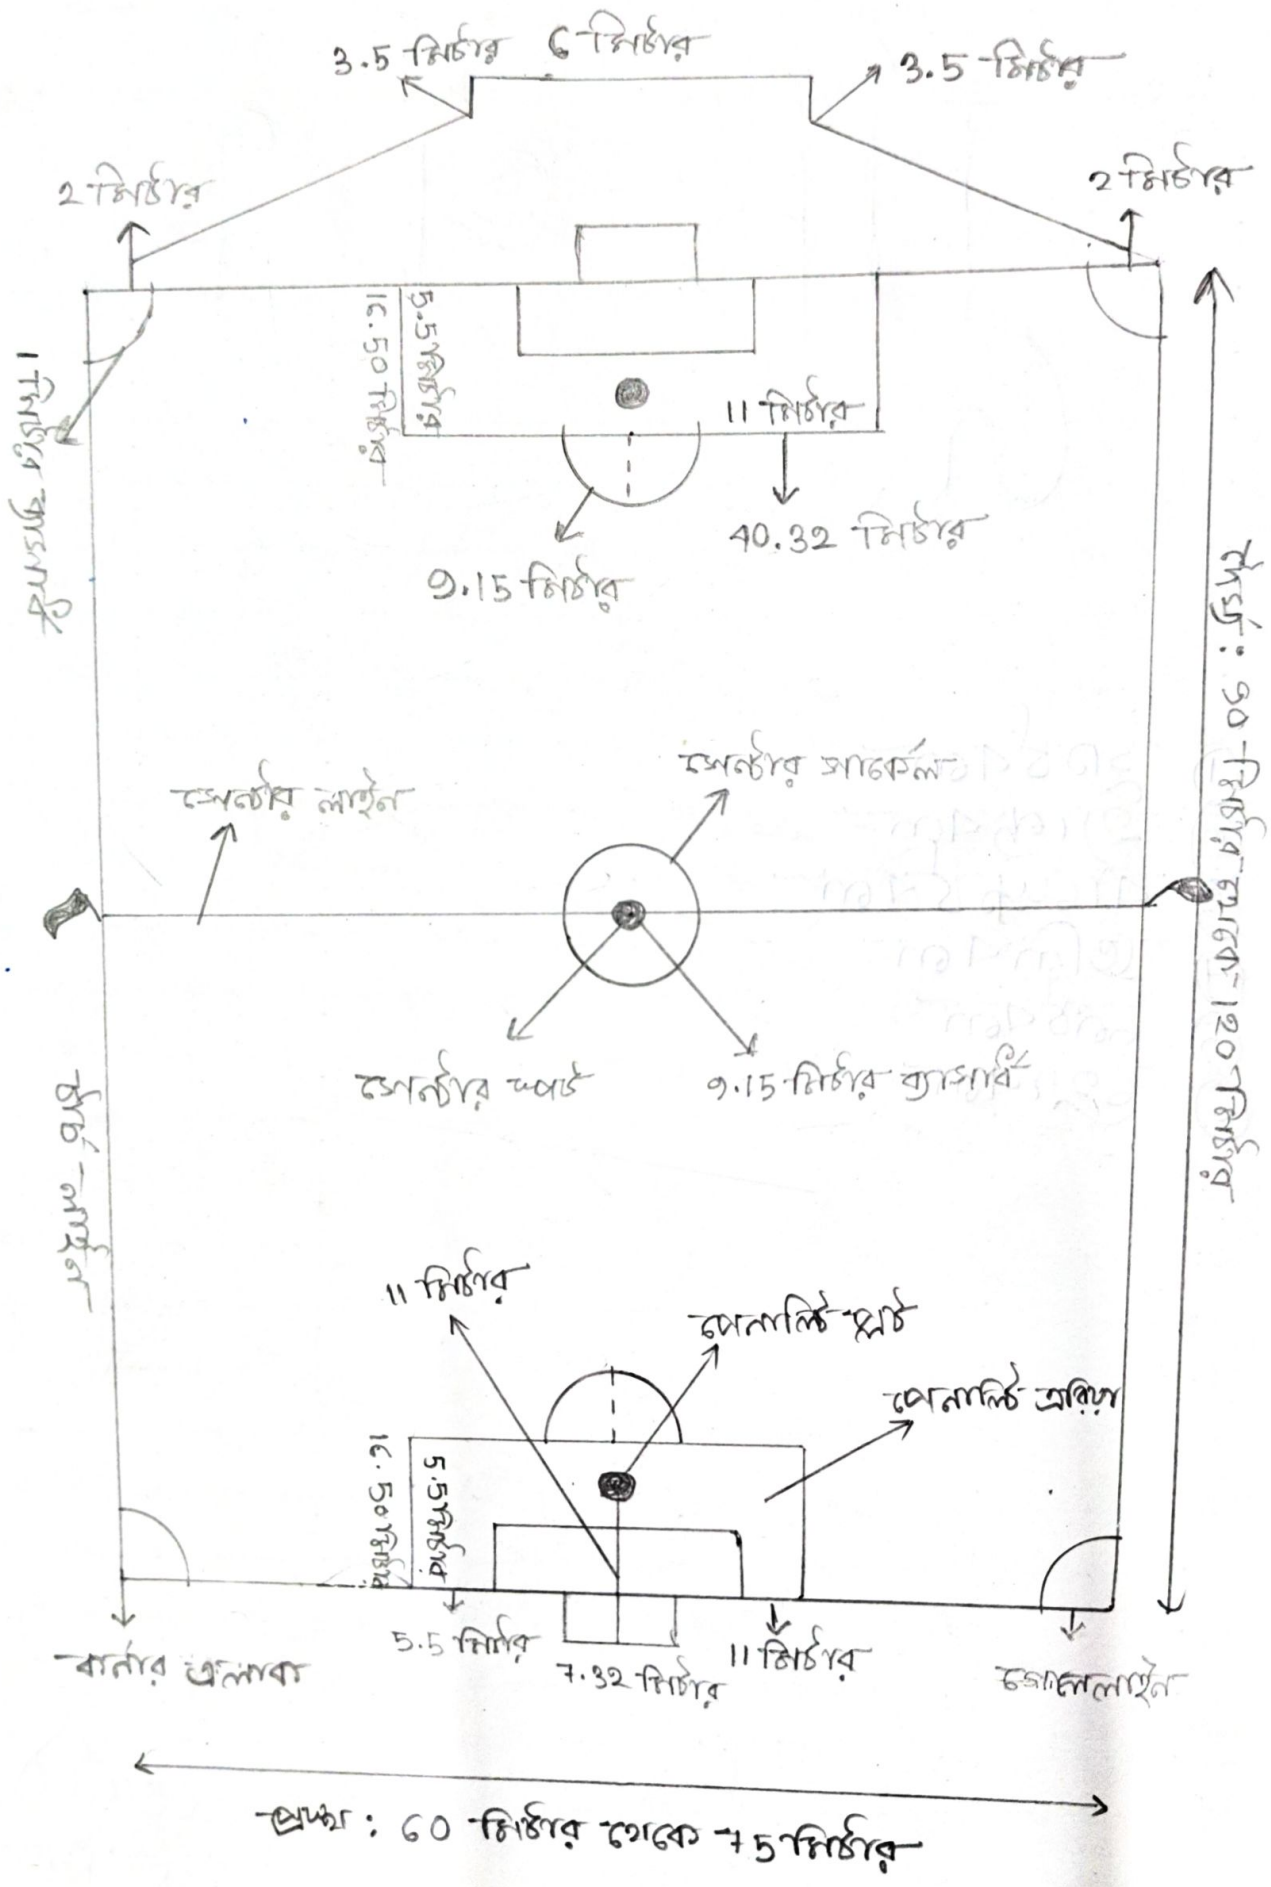 3.5 মিটার
6 মিটার
3.5 মিটার
2 মিটার
2 মিটার
1 মিটার ব্যাসার্ধ
16.50 মিটার
5.5 মিটার
11 মিটার
40.32 মিটার
9.15 মিটার
দৈর্ঘ্য: 90 মিটার থেকে 120 মিটার
সেন্টার লাইন
সেন্টার সার্কেল
সেন্টার স্পট
9.15 মিটার ব্যাসার্ধ
টাচ লাইন
11 মিটার
পেনাল্টি স্পট
পেনাল্টি এরিয়া
16.50 মিটার
5.5 মিটার
কর্নার এলাকা
5.5 মিটার
7.32 মিটার
11 মিটার
গোললাইন
প্রস্থ: 60 মিটার থেকে 75 মিটার